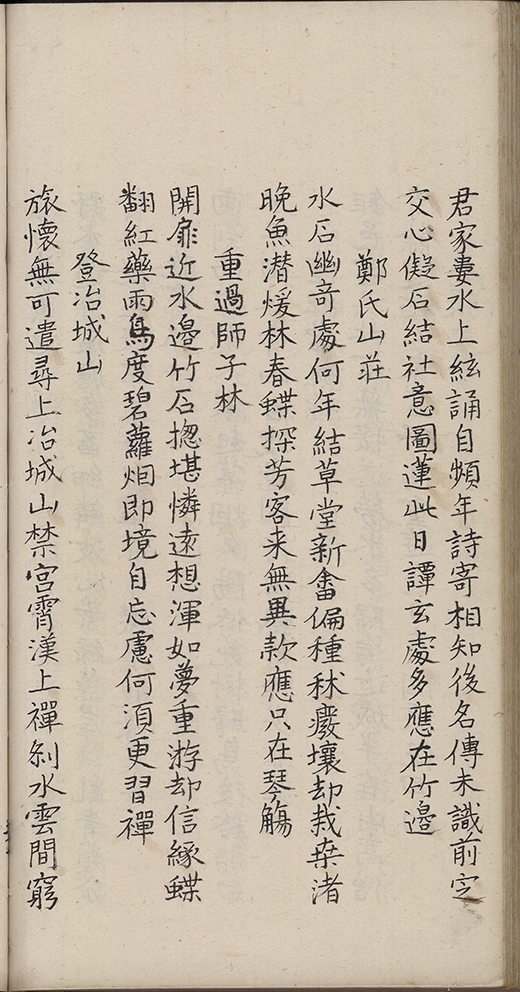 君家婁水上絃誦自頻年詩寄相知後名傳未識前定
交心儗石結社意圖蓮此日譚玄處多應在竹邊
鄭氏山莊
水石幽奇處何年結草堂新畬偏種秫廢壤却栽桒渚
晚魚潛煖林春蝶探芳客来無異款應只在琴觴
重過師子林
開扉近水邊竹石揔堪憐遠想渾如夢重游却信緣蝶
翻紅藥雨鳥度碧蘿烟即境自忘慮何須更習禪
登冶城山
旅懷無可遣尋上冶城山禁宮霄漢上禪刹水雲間窮